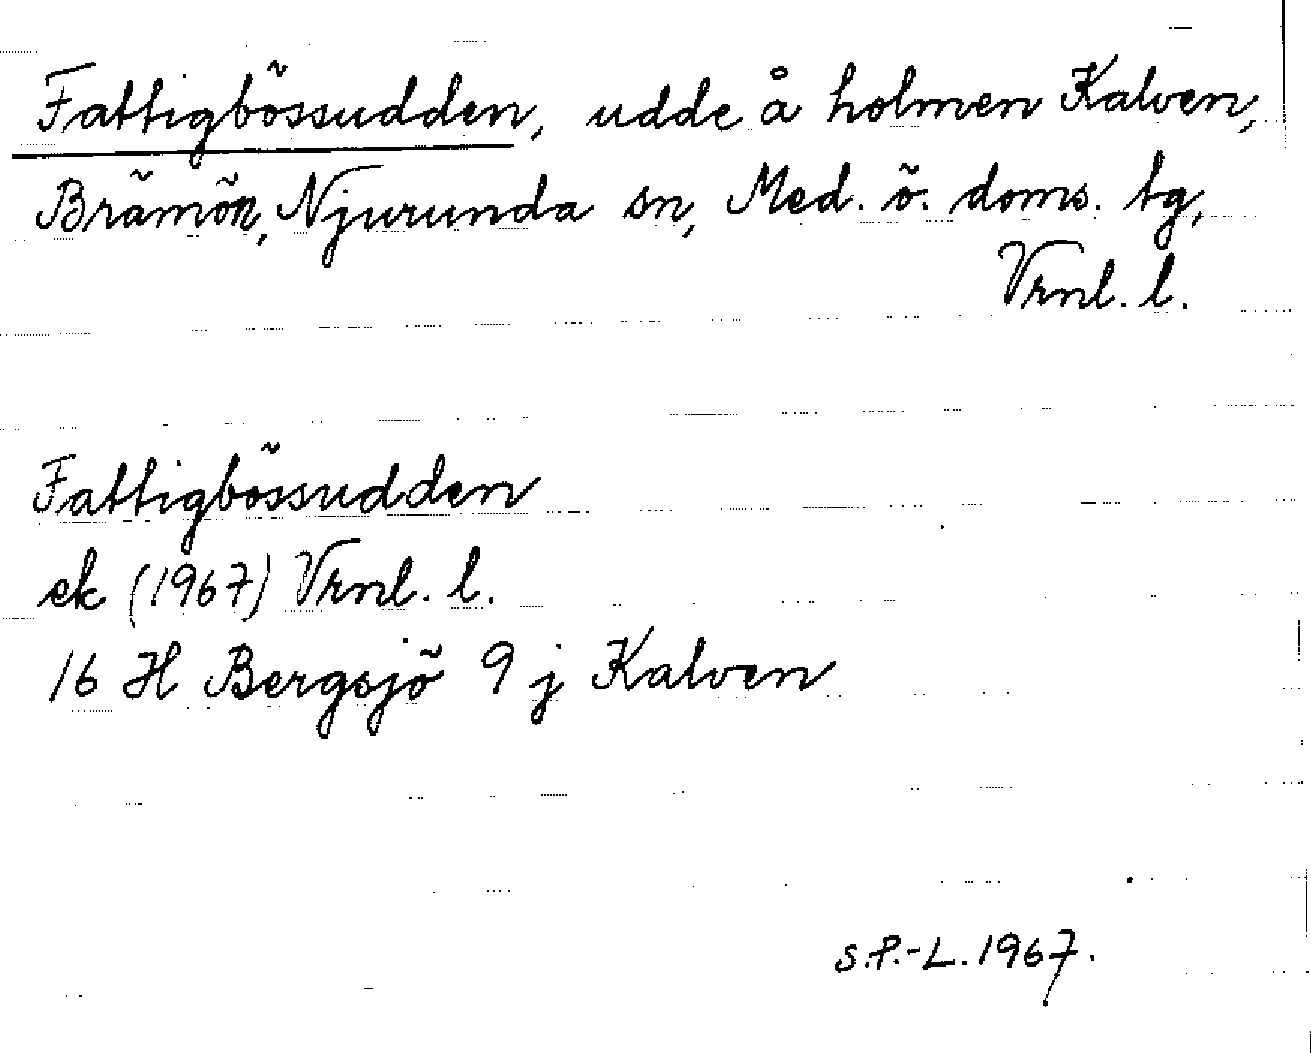 Fattigbössudden, udde å holmen Kalven,
Brämön, Njurunda sn, Med. ö. doms. tg,
Vrnl. l.
Fattigbössudden
ek (1967) Vrnl. l.
16 H Bergsjö 9 j Kalven
S.P.-L. 1967.